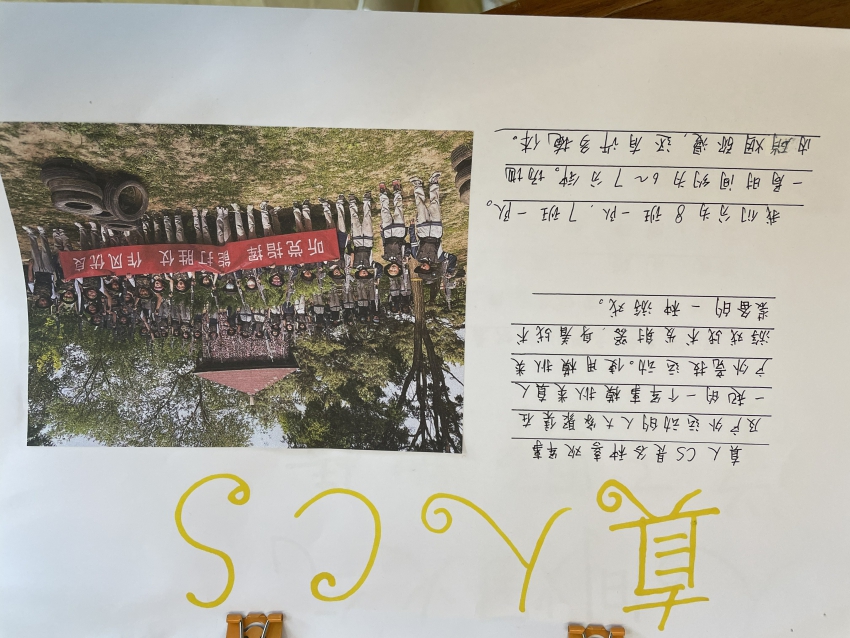 真人CS
真人CS是各种喜欢军事
及户外运动的人大家聚集在
一起的一个军事模拟类真人
户外竞技运动。使用模拟类
游戏战术发射器、身着战术
装备的一种游戏。
我们分为8班一队、7班一队。
一局时间约为6~7分钟。场地
内硝烟弥漫,还有许多掩体。
听党指挥 能打胜仗 作风优良